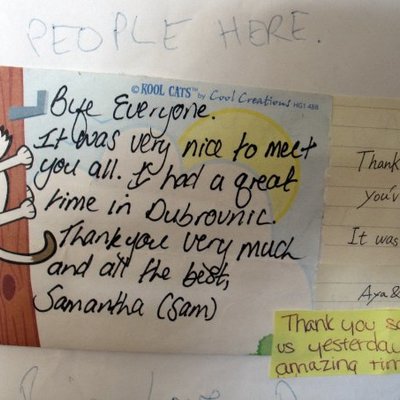 PEOPLE HERE.
© KOOL CATS™ by Cool Creations HG1488
Bye Everyone.
It was very nice to meet
you all. I had a great
time in Dubrovnic.
Thankyou very much
and all the best,
Samantha (Sam)
Thank
you'v
It was
Aya &
Thank you so
us yesterday
amazing tim